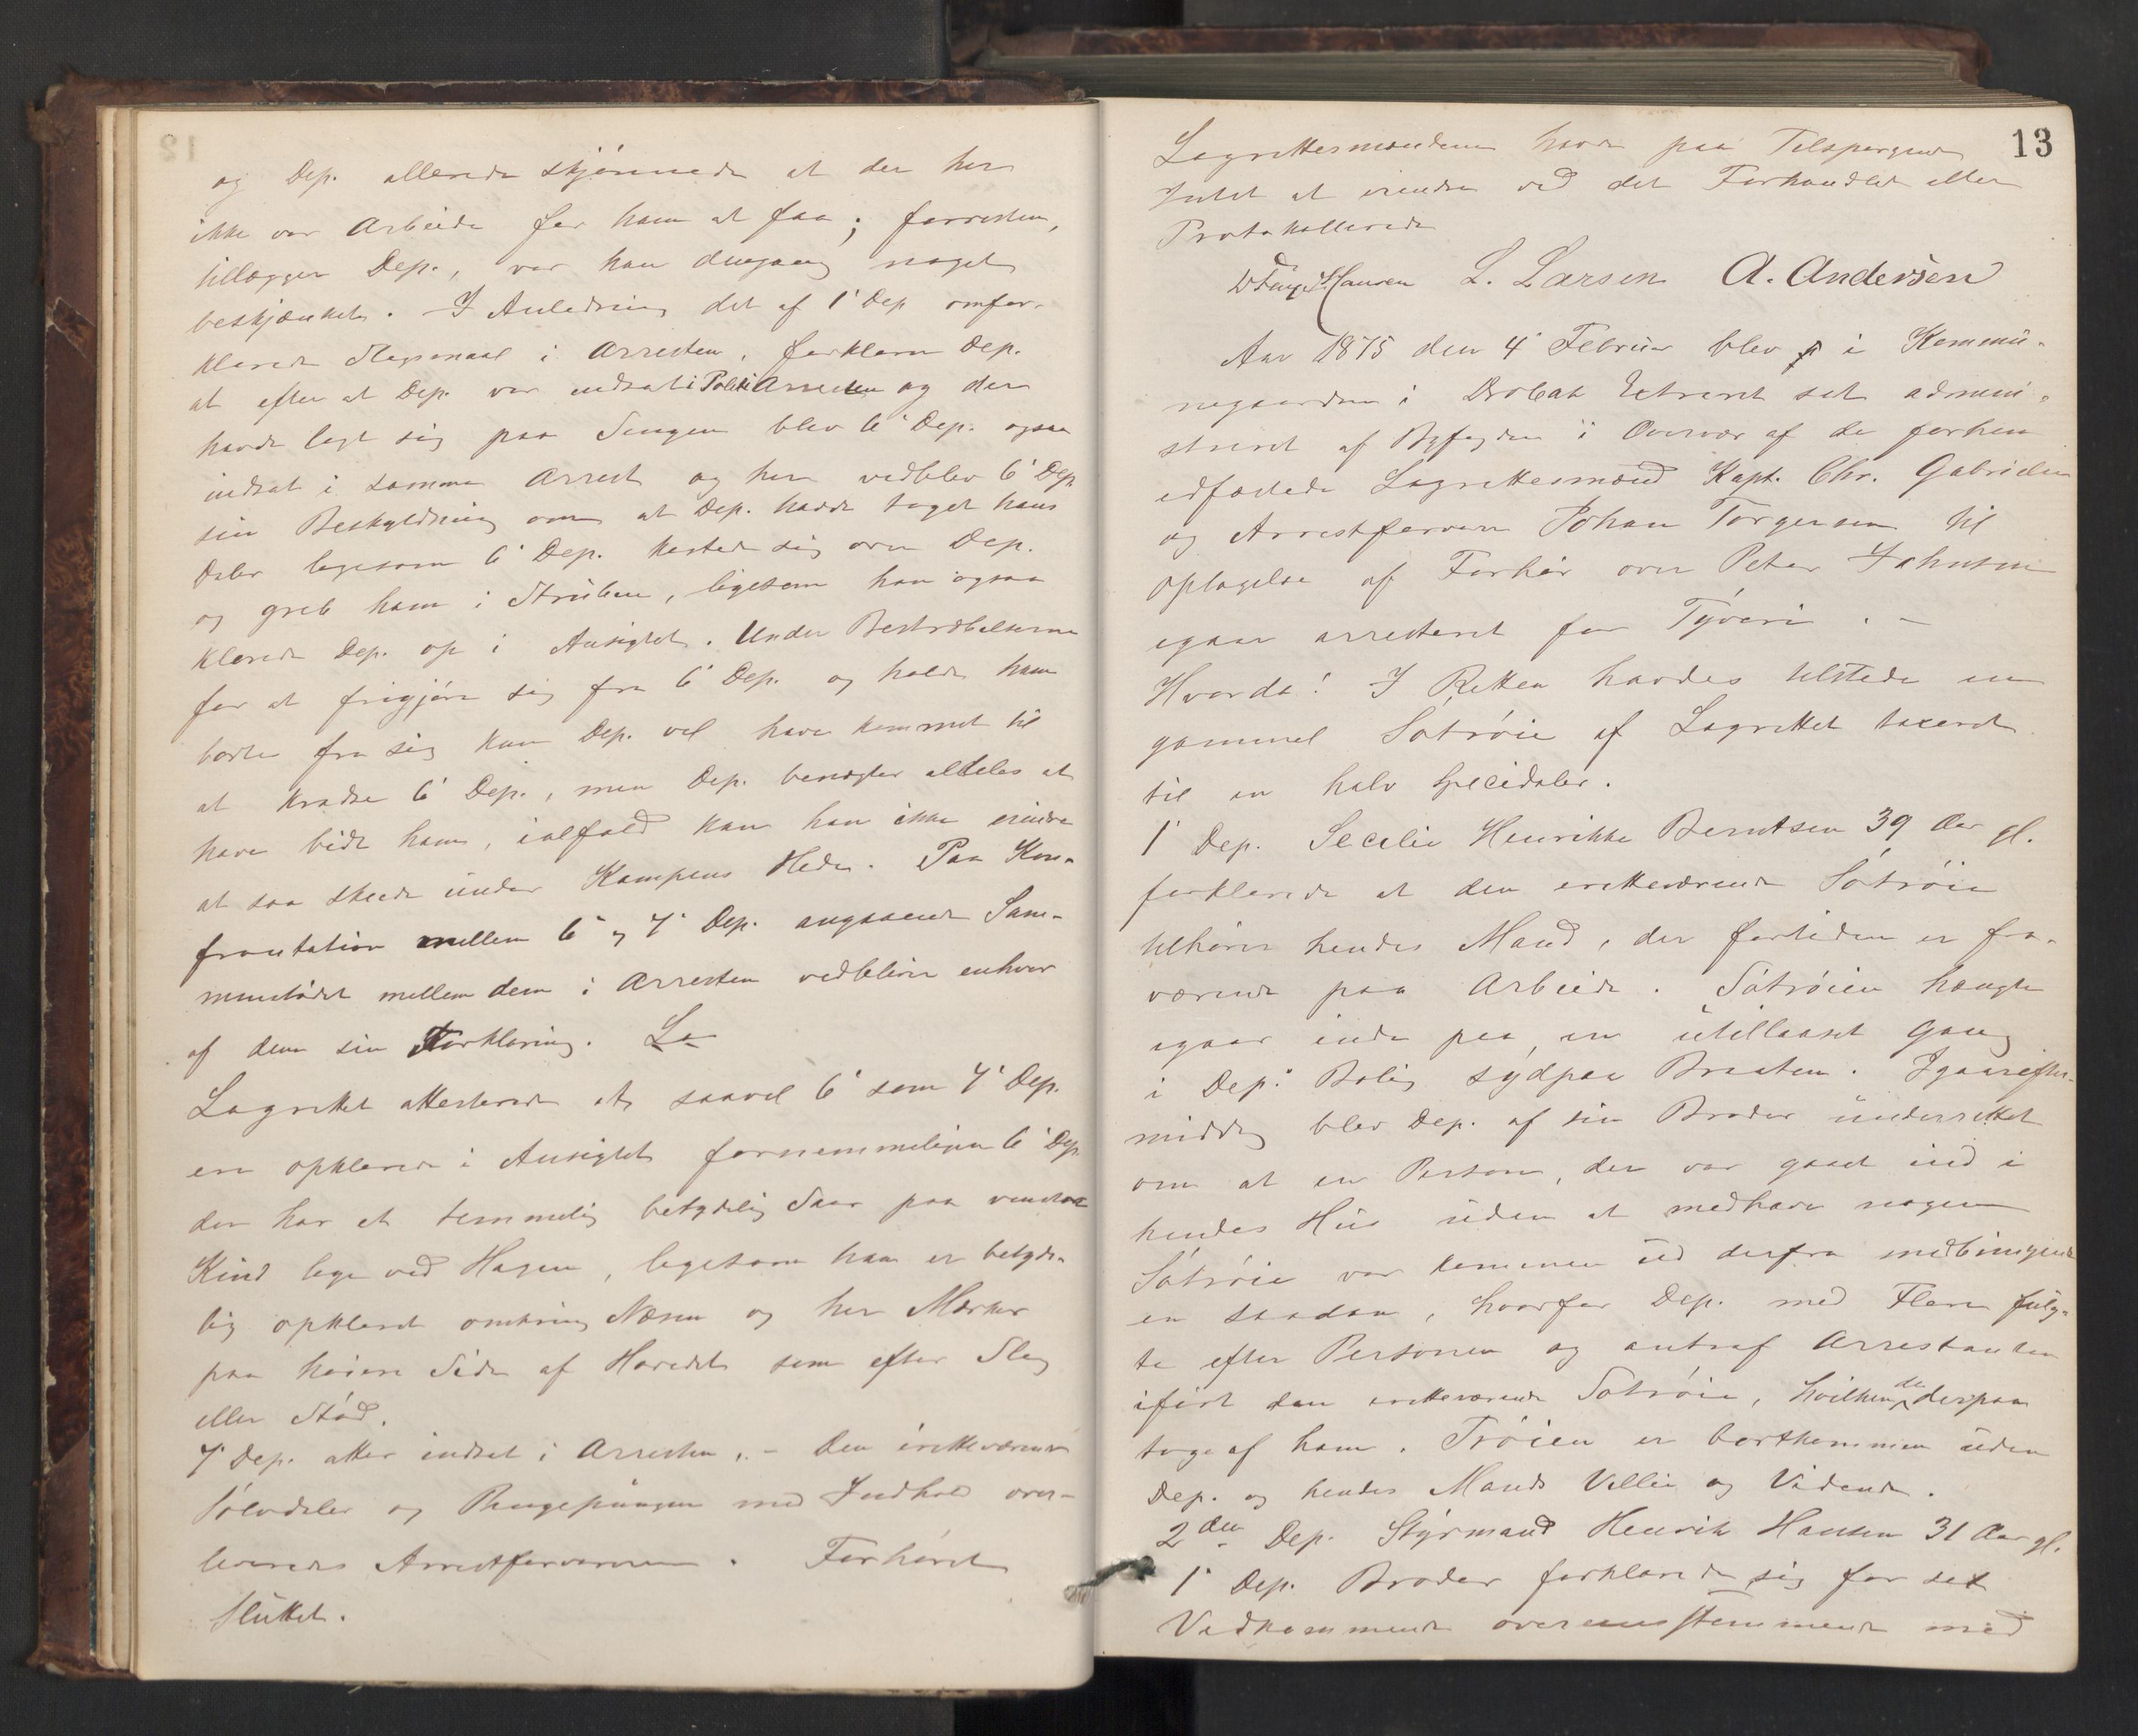 og Dep. allerede skjønnede at der her
ikke var Arbeide for ham at faa; forresten,
tillægger Dep., var han dengang noget
beskjænket. I Anledning det af 1' Dep omfor-
klarede Slagsmaal i Arresten, forklarer Dep.
at efter at Dep. var indsat i Politi Arresten og der
havde lagt sig paa Sengen blev 6' Dep. ogsaa
indsat i samme Arrest og her vedblev 6' Dep
sin Beskyldning om at Dep. havde taget hans
Daler ligesom 6' Dep. kastede sig over Dep.
og greb ham i Struben, ligesom han ogsaa
klorede Dep. op i Ansigtet. Under Bestræbelserne
for at frigjøre sig fra 6' Dep. og holde ham
borte fra sig kan Dep. vel have kommet til
at kradse 6' Dep., men Dep. benægter aldeles at
have bidt ham, ialfald kan han ikke erindre
at saa skede under Kampens Hede. Paa Kon-
frontation mellem 6' og 7' Dep. angaaende Sam-
menstødet mellem dem i Arresten vedbliver enhver
af dem sin Forklaring. La
Lagrettet attesterede at saavel 6' som 7' Dep.
ere opklorede i Ansigtet fornemmeligen 6' Dep
der har et temmelig betydelig Saar paa venstre
Kind lige ved Hagen, ligesom han er betyde-
lig opkloret omkring Næsen og har Mærker
paa høire Side af Hovedet som efter Slag
eller Stød.
7' Dep. atter indsat i Arresten. - Den iretteværende
Sølvdaler og Pengepungen med Indhold over-
leveredes Arrestforvareren. Forhøret
sluttet.
13
Lagrettesmændene havde paa Tilspørgende
Intet at erindre ved det Forhandlede eller
Protokollerede
Hansen L. Larsen A. Andersen
Aar 1875 den 4' Februar blev i Kommu-
negaarden i Drøbak Extraret sat admini-
streret af Byfogden i Overvær af de forhen
edfæstede Lagrettesmænd Kapt. Chr. Gabrielsen
og Arrestforvarer Johan Torgersen til
Optagelse af Forhør over Peter Johnsen
igaar arresteret for Tyveri. -
Hvorda! I Retten havdes tilstede en
gammel Satrøie af Lagrettet taxeret
til en halv Specidaler.
1' Dep. Secelie Henrikke Berntsen 39 Aar gl.
forklarede at den iretteværende Satrøie
tilhører hendes Mand, der fortiden er fra-
værende paa Arbeide. Satrøien hængte
igaar inde paa en utillaaset Gang
i Dep.' Bolig sydpaa Braaten. Igaarefter-
middag blev Dep. af sin Broder underrettet
om at en Person, der var gaaet ind i
hendes Hus uden at medhave nogen
Satrøie var kommen ud derfra medbringende
en saadan, hvorfor Dep. med Flere fulg-
te efter Personen og antraf Arrestanten
iført den iretteværende Satrøie, hvilken de derpaa
toge af ham. Trøien er bortkommen uden
Dep. og hendes Mands Villie og Vidende.
2den Dep. Styrmand Henrik Hansen 31 Aar gl.
1' Dep. Broder forklarede sig for sit
Vedkommende overensstemmende med